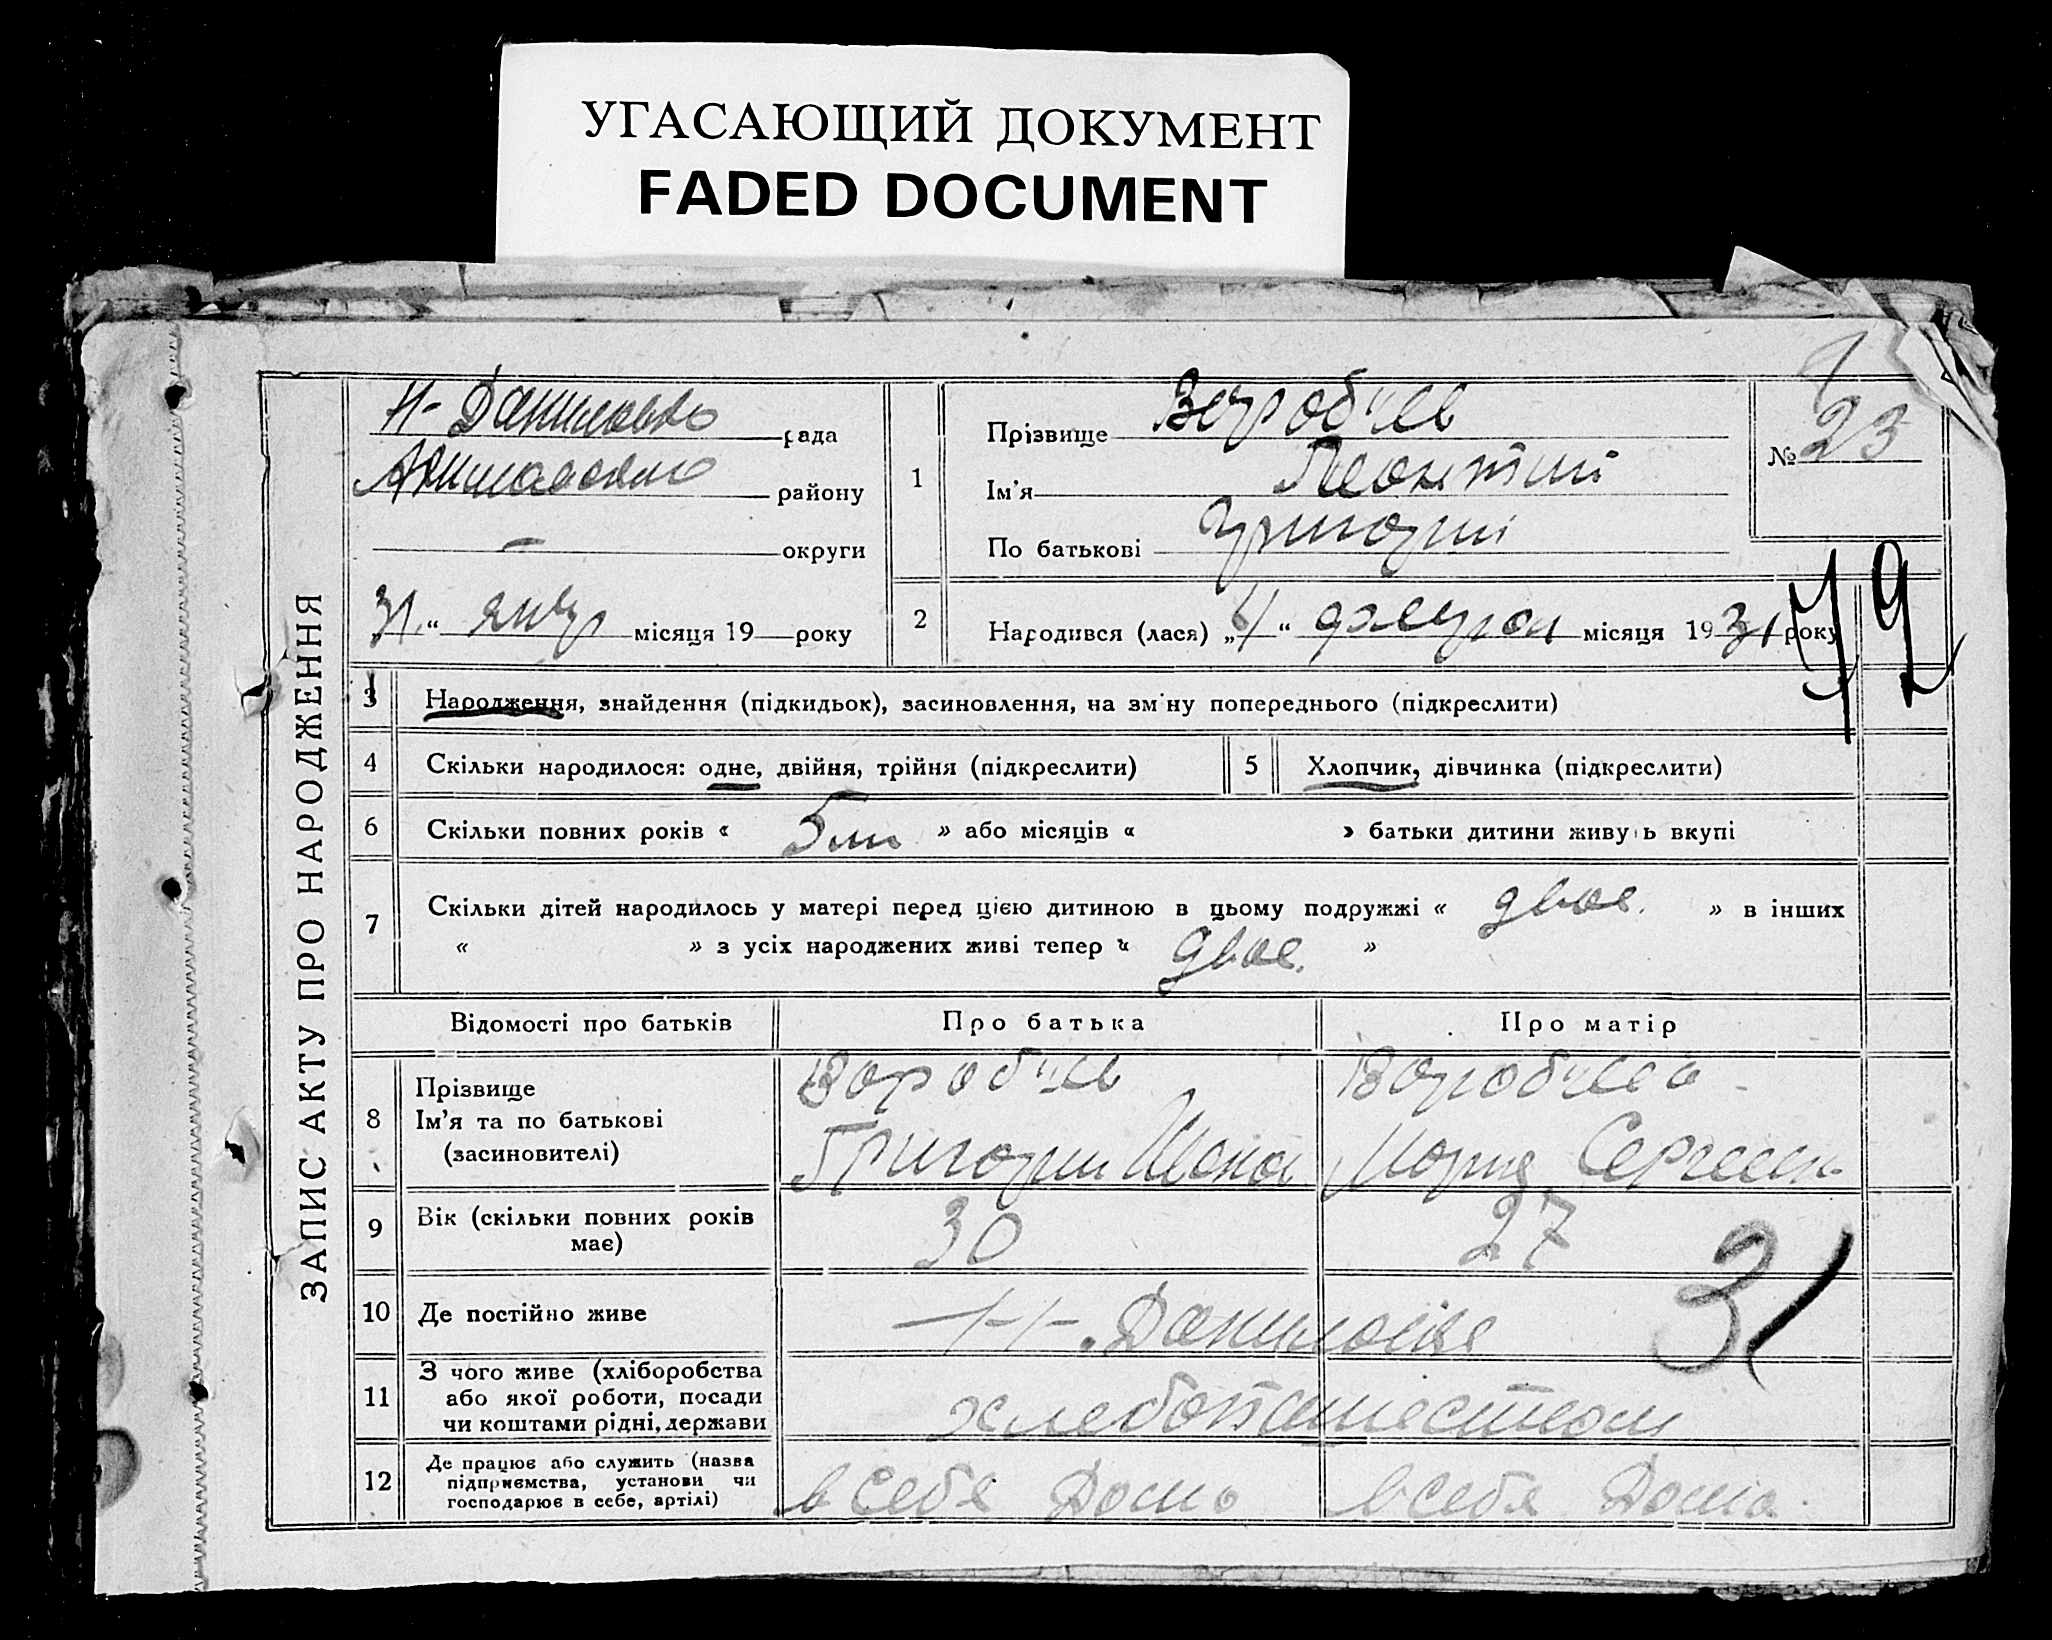 УГАСАЮЩИЙ ДОКУМЕНТ
FADED DOCUMENT
ЗАПИС АКТУ ПРО НАРОДЖЕННЯ
Н-Даниловка рада
району
— округи
31 “ янвр місяця 19 року
1
Прізвище Воробйев
Ім'я Леонтий
По батькові Григорий
№ 23
2
Народився (лася) „ 4 “ місяця 1931 року
72
3 Народження, знайдення (підкидьок), засиновлення, на зміну попереднього (підкреслити)
4 Скільки народилося: одне, двійня, трійня (підкреслити) 5 Хлопчик, дівчинка (підкреслити)
6 Скільки повних років « 5 » або місяців « » батьки дитини живуть вкупі
7 Скільки дітей народилось у матері перед цією дитиною в цьому подружжі « двое. » в інших
« » з усіх народжених живі тепер « двое. »
Відомості про батьків Про батька Про матір
8 Прізвище
Ім'я та по батькові
(засиновителі)
Воробйев
Григорий
Воробйева
Мария Сергеев
9 Вік (скільки повних років має) 30 27
31
10 Де постійно живе Н-Даниловке
11 З чого живе (хліборобства
або якої роботи, посади
чи коштами рідні, держави
хлебопашеством
12 Де працює або служить (назва
підприємства, установи чи
господарює в себе, артілі)
в себя дома в себя дома